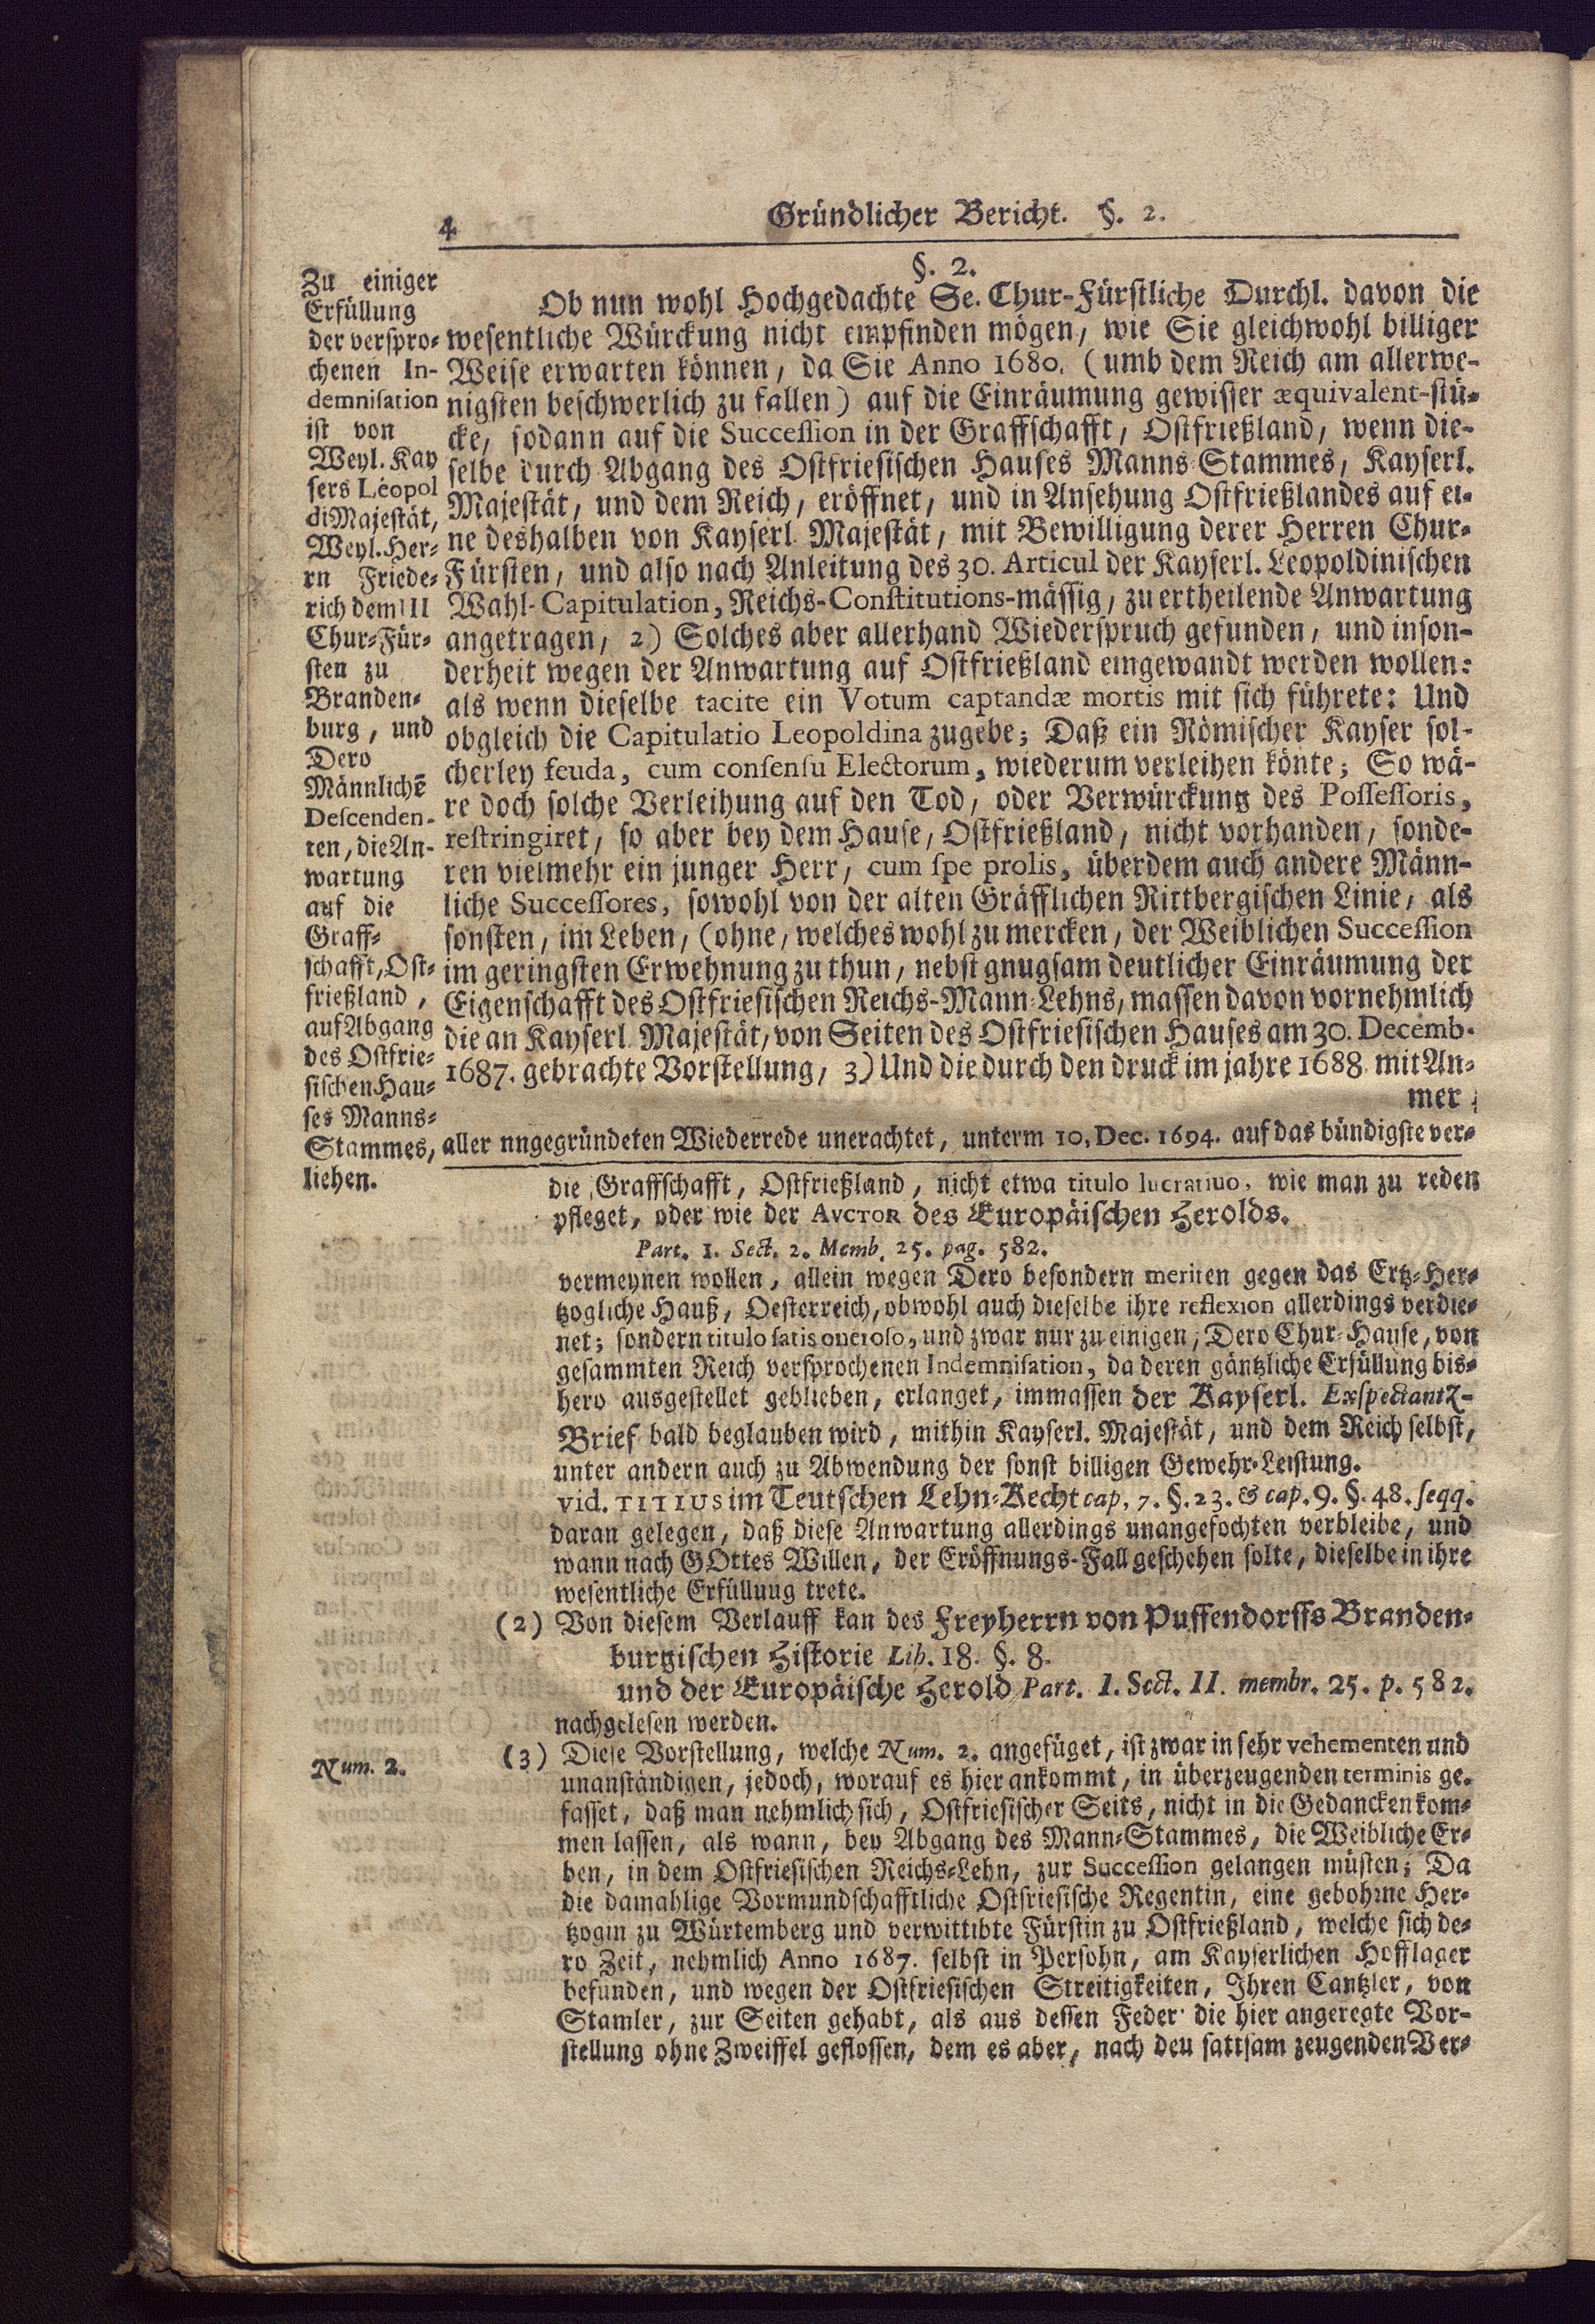 4
Gründlicher Bericht. §. 2.
Zu einiger
Erfüllung
der verspro-
chenen In-
demnisation
ist von
Weyl. Kay
sers Leopol
di Majestät,
Weyl. Her-
rn Friede-
rich dem III
Chur-Für-
sten zu
Branden-
burg, und
Dero
Männlichē
Descenden-
ten, die An-
wartung
auf die
Graff-
schafft, Ost-
frießland,
auf Abgang
des Ostfrie-
sischen Hau-
ses Manns-
Stammes, aller nngegründeten Wiederrede unerachtet, unterm 10. Dec. 1694. auf das bündigste ver-
liehen.
§. 2.
Ob nun wohl Hochgedachte Se. Chur-Fürstliche Durchl. davon die
wesentliche Würckung nicht empfinden mögen, wie Sie gleichwohl billiger
Weise erwarten können, da Sie Anno 1680. (umb dem Reich am allerwe-
nigsten beschwerlich zu fallen) auf die Einräumung gewisser æquivalent-stü-
cke, sodann auf die Succession in der Graffschafft, Ostfrießland, wenn die-
selbe durch Abgang des Ostfriesischen Hauses Manns-Stammes, Kayserl.
Majestät, und dem Reich, eröffnet, und in Ansehung Ostfrießlandes auf ei-
ne deshalben von Kayserl. Majestät, mit Bewilligung derer Herren Chur-
Fürsten, und also nach Anleitung des 30. Articul der Kayserl. Leopoldinischen
Wahl-Capitulation, Reichs-Constitutions-mässig, zu ertheilende Anwartung
angetragen, 2) Solches aber allerhand Wiederspruch gefunden, und inson-
derheit wegen der Anwartung auf Ostfrießland eingewandt werden wollen:
als wenn dieselbe tacite ein Votum captandæ mortis mit sich führete: Und
obgleich die Capitulatio Leopoldina zugebe; Daß ein Römischer Kayser sol-
cherley feuda, cum consensu Electorum, wiederum verleihen könte; So wä-
re doch solche Verleihung auf den Tod, oder Verwürckung des Possessoris,
restringiret, so aber bey dem Hause, Ostfrießland, nicht vorhanden, sonde-
ren vielmehr ein junger Herr, cum spe prolis, überdem auch andere Männ-
liche Successores, sowohl von der alten Gräfflichen Rittbergischen Linie, als
sonsten, im Leben, (ohne, welches wohl zu mercken, der Weiblichen Succession
im geringsten Erwehnung zu thun, nebst gnugsam deutlicher Einräumung der
Eigenschafft des Ostfriesischen Reichs-Mann-Lehns, massen davon vornehmlich
die an Kayserl. Majestät, von Seiten des Ostfriesischen Hauses am 30. Decemb.
1687. gebrachte Vorstellung, 3) Und die durch den druck im jahre 1688. mit An-
mer
die Graffschafft, Ostfrießland, nicht etwa titulo lucratiuo, wie man zu reden
pfleget, oder wie der AVCTOR des Europäischen Herolds.
Part. 1. Sect. 2. Memb. 25. pag. 582.
vermeynen wollen, allein wegen Dero besondern meriten gegen das Ertz-Her-
tzogliche Hauß, Oesterreich, obwohl auch dieselbe ihre reflexion allerdings verdie-
net; sondern titulo satis oneroso, und zwar nur zu einigen, Dero Chur-Hause, von
gesammten Reich versprochenen Indemnisation, da deren gäntzliche Erfüllung bis-
hero ausgestellet geblieben, erlanget, immassen der Kayserl. Exspectantz-
Brief bald beglauben wird, mithin Kayserl. Majestät, und dem Reich selbst,
unter andern auch zu Abwendung der sonst billigen Gewehr-Leistung.
vid. TITIUS im Teutschen Lehn-Recht cap. 7. §. 23. & cap. 9. §. 48. seqq.
daran gelegen, daß diese Anwartung allerdings unangefochten verbleibe, und
wann nach GOttes Willen, der Eröffnungs-Fall geschehen solte, dieselbe in ihre
wesentliche Erfüllung trete.
(2) Von diesem Verlauff kan des Freyherrn von Puffendorffs Branden-
burgischen Historie Lib. 18. §. 8.
und der Europäische Herold Part. I. Sect. II. membr. 25. p. 582.
nachgelesen werden.
Num. 2.
(3) Diese Vorstellung, welche Num. 2. angefüget, ist zwar in sehr vehementen und
unanständigen, jedoch, worauf es hier ankommt, in überzeugenden terminis ge-
fasset, daß man nehmlich sich, Ostfriesischer Seits, nicht in die Gedancken kom-
men lassen, als wann, bey Abgang des Mann-Stammes, die Weibliche Er-
ben, in dem Ostfriesischen Reichs-Lehn, zur Succession gelangen müsten; Da
die damahlige Vormundschafftliche Ostfriesische Regentin, eine gebohrne Her-
tzogin zu Würtemberg und verwittibte Fürstin zu Ostfrießland, welche sich de-
ro Zeit, nehmlich Anno 1687. selbst in Persohn, am Kayserlichen Hofflager
befunden, und wegen der Ostfriesischen Streitigkeiten, Ihren Cantzler, von
Stamler, zur Seiten gehabt, als aus dessen Feder die hier angeregte Vor-
stellung ohne Zweiffel geflossen, dem es aber, nach deu sattsam zeugenden Ver-